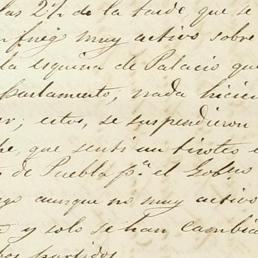 las 2½ de la tarde que se
fuego muy activo sobre
la esquina de Palacio que
Parlamento, nada hicie
er; estos, se suspendieron
he, que sentí un tiroteo e
s de Puebla pª el
ego aunque no muy activo
y solo se han cambia
os partidos